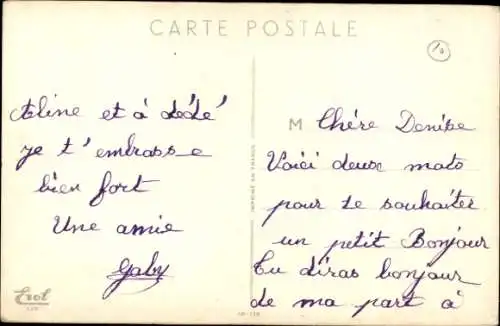 CARTE POSTALE
10
M Chére Denise
Voici deux mots
pour te souhaiter
un petit Bonjour
Tu diras bonjour
de ma part à
Aline et à dédé
je t'embrasse
bien fort
Une amie
Gaby
Erol
IMPRIMÉ EN FRANCE